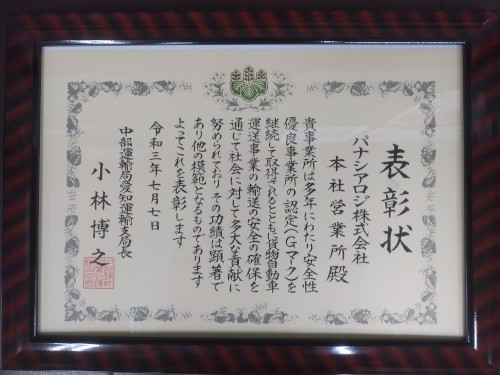 表彰状
パナシアロジ株式会社
本社営業所殿
貴事業所は多年にわたり安全性
優良事業所の認定(Gマーク)を
継続して取得されるとともに貨物自動車
運送事業の輸送の安全の確保を
通じて社会に対して多大な貢献に
努められており その功績は顕著で
あり他の模範となるものであります
よってこれを表彰します
令和三年七月七日
中部運輸局愛知運輸支局長
小林博之